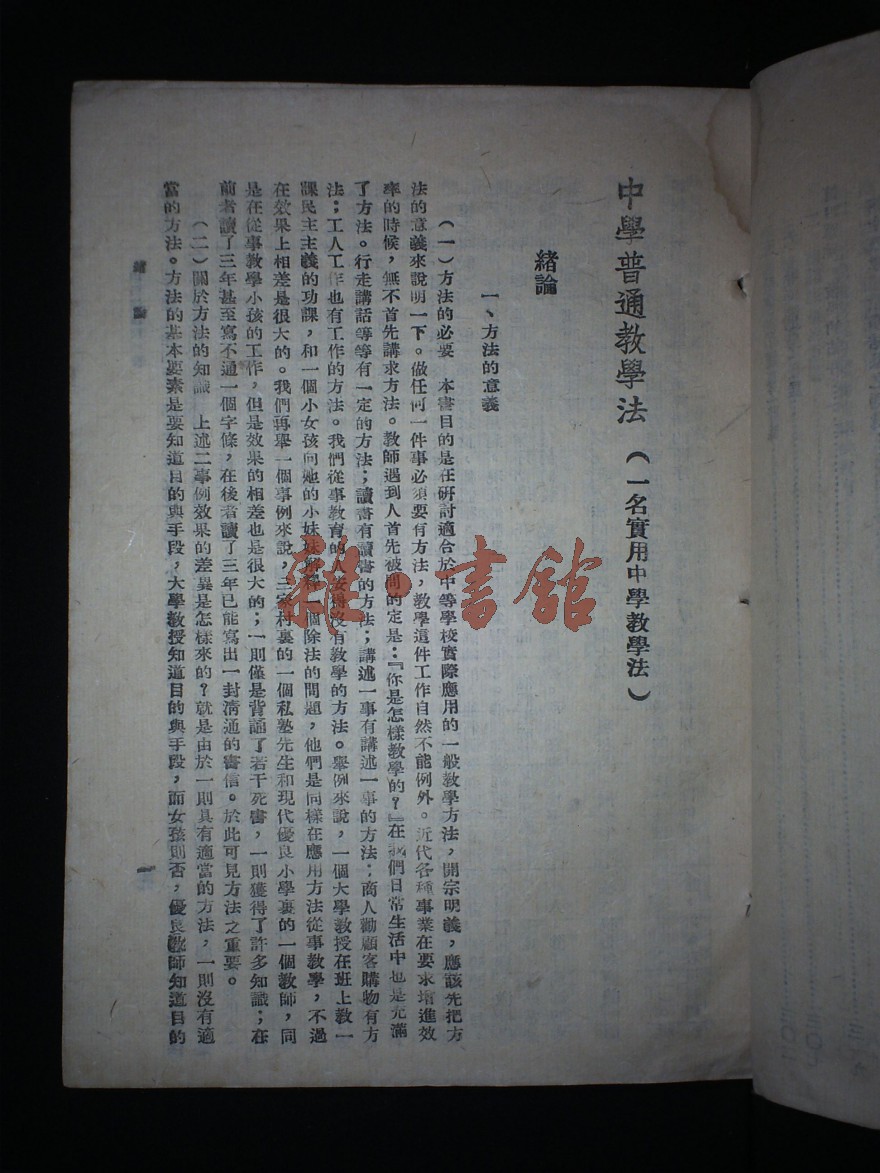 中學普通教學法(一名實用中學教學法)
緒論
一、方法的意義
(一)方法的必要 本書目的是在研討適合於中等學校實際應用的一般教學方法,開宗明義,應該先把方
法的意義來說明一下。做任何一件事必須要有方法,教學這件工作自然不能例外。近代各種事業在要求增進效
率的時候,無不首先講求方法。教師遇到人首先被問的定是:『你是怎樣教學的?』在我們日常生活中也是充滿
了方法。行走講話等等有一定的方法;讀書有讀書的方法;講述一事有講述一事的方法;商人勸顧客購物有方
法;工人工作也有工作的方法。我們從事教育的人安得沒有教學的方法。舉例來說,一個大學教授在班上教一
課民主主義的功課,和一個小女孩向她的小妹妹解釋一個除法的問題,他們是同樣在應用方法從事教學,不過
在效果上相差是很大的。我們再舉一個事例來說,三家村裏的一個私塾先生和現代優良小學裏的一個教師,同
是在從事教學小孩的工作,但是效果的相差也是很大的;一則僅是背誦了若干死書,一則獲得了許多知識;在
前者讀了三年甚至寫不通一個字條,在後者讀了三年已能寫出一封清通的書信。於此可見方法之重要。
(二)關於方法的知識 上述二事例效果的差異是怎樣來的?就是由於一則具有適當的方法,一則沒有適
當的方法。方法的基本要素是要知道目的與手段,大學教授知道目的與手段,而女孩則否,優良教師知道目的
緒論
一
雜·書館